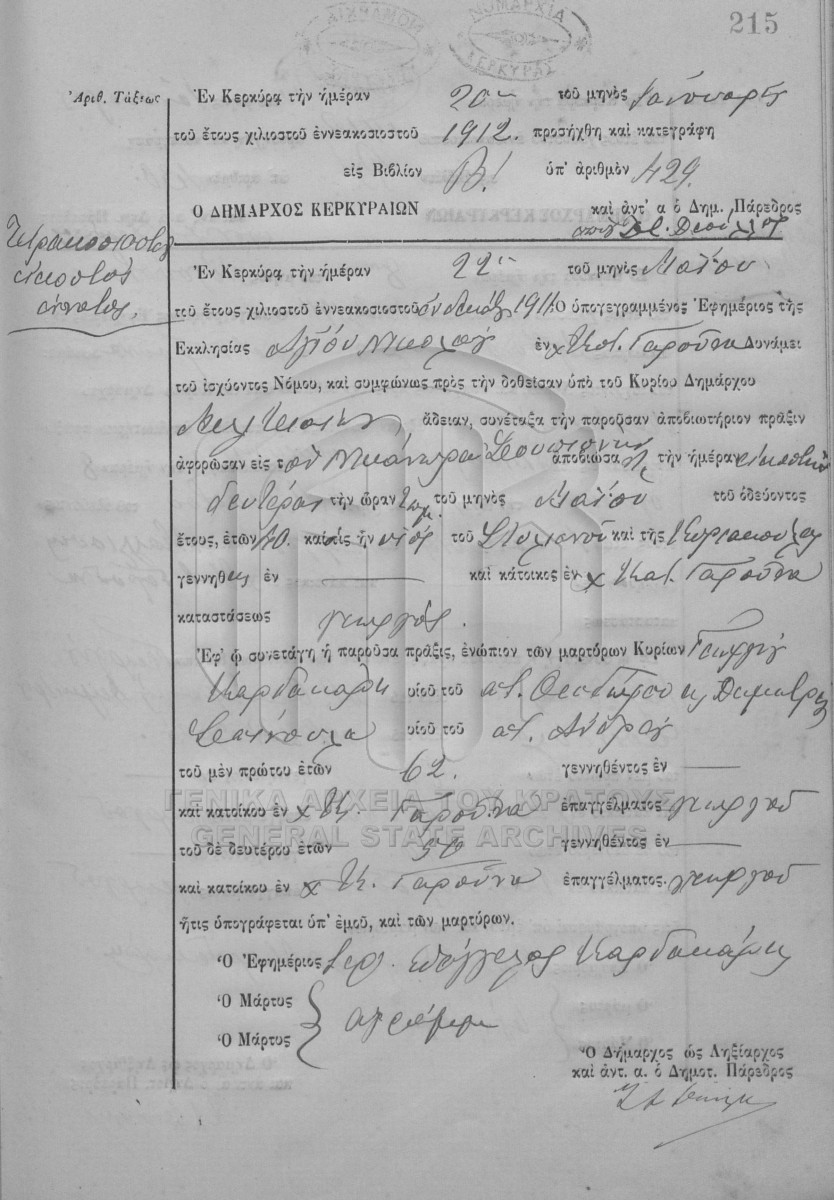 215
ΝΟΜΑΡΧΙΑ
ΚΕΡΚΥΡΑΣ
Ἀριθ. Τάξεως
Ἐν Κερκύρᾳ τὴν ἡμέραν 20ην τοῦ μηνὸς
τοῦ ἔτους χιλιοστοῦ ἐννεακοσιοστοῦ 1912. προσήχθη καὶ κατεγράφη
εἰς Βιβλίον Β! ὑπ' ἀριθμὸν 429.
Ο ΔΗΜΑΡΧΟΣ ΚΕΡΚΥΡΑΙΩΝ καὶ ἀντ' α ὁ Δημ. Πάρεδρος
Τετρακοσιοστὸς
εἰκοστὸς
ἔννατος.
Ἐν Κερκύρᾳ τὴν ἡμέραν 22αν τοῦ μηνὸς Μαΐου
τοῦ ἔτους χιλιοστοῦ ἐννεακοσιοστοῦ ἑνδεκάτου 1911 Ὁ ὑπογεγραμμένος Ἐφημέριος τῆς
Ἐκκλησίας Ἁγίου Νικολάου ἐν χ Κατ. Γαρούνα Δυνάμει
τοῦ ἰσχύοντος Νόμου, καὶ συμφώνως πρὸς τὴν δοθεῖσαν ὑπὸ τοῦ Κυρίου Δημάρχου
Μελιτειέων ἄδειαν, συνέταξα τὴν παροῦσαν ἀποβιωτήριον πρᾶξιν
ἀφορῶσαν εἰς τὸν Νικάνορα ἀποβιώσα τὴν ἡμέραν εἰκοστὴν
δευτέραν τὴν ὥραν τοῦ μηνὸς Μαΐου τοῦ ὁδεύοντος
ἔτους, ἐτῶν 40. καὶ ἦν υἱὸς τοῦ Στυλιανοῦ καὶ τῆς Κυριακούλας
γεννηθεὶς ἐν — καὶ κάτοικος ἐν χ Κατ. Γαρούνα
καταστάσεως γεωργός.
Ἐφ' ᾧ συνετάγη ἡ παροῦσα πρᾶξις, ἐνώπιον τῶν μαρτύρων Κυρίων Γεωργίου
Καρδακάρη υἱοῦ τοῦ ποτ. Θεοδώρου κ Δημητρίου
υἱοῦ τοῦ ποτ. Ἀνδρέου
τοῦ μὲν πρώτου ἐτῶν 62. γεννηθέντος ἐν —
καὶ κατοίκου ἐν χ Κ. Γαρούνα ἐπαγγέλματος γεωργοῦ
τοῦ δὲ δευτέρου ἐτῶν γεννηθέντος ἐν —
καὶ κατοίκου ἐν χ Κ. Γαρούνα ἐπαγγέλματος. γεωργοῦ
ἥτις ὑπογράφεται ὑπ' ἐμοῦ, καὶ τῶν μαρτύρων.
Ὁ Ἐφημέριος Ἱερ. Εὐάγγελος Καρδακάρης
Ὁ Μάρτυς
Ὁ Μάρτυς
ἀγράμματοι
Ὁ Δήμαρχος ὡς Ληξίαρχος
καὶ ἀντ. α. ὁ Δημοτ. Πάρεδρος
ΓΕΝΙΚΑ ΑΡΧΕΙΑ ΤΟΥ ΚΡΑΤΟΥΣ
GENERAL STATE ARCHIVES